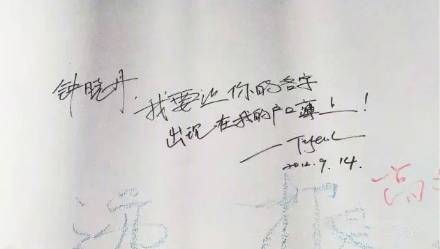 钟晓丹,
我要让你的名字
出现在我的户口薄上!
2012.9.14.